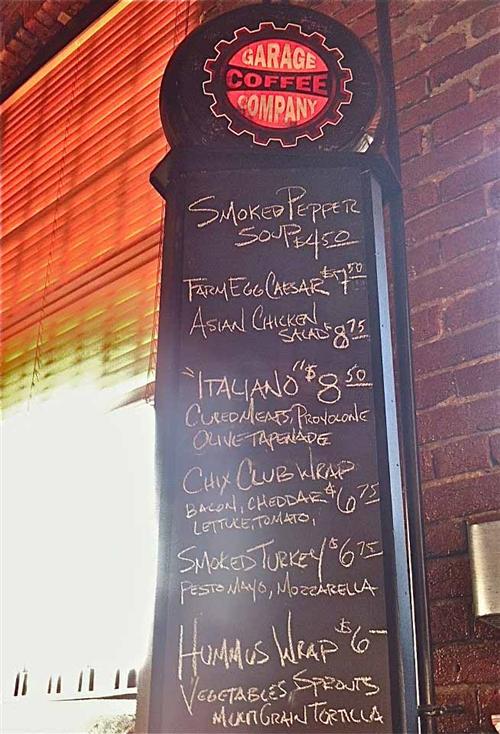 GARAGE
COFFEE
COMPANY
SMOKED PEPPER
SOUP $4.50
FARM EGG CAESAR $7.50
ASIAN CHICKEN
SALAD $8.75
"ITALIANO" $8.50
CURED MEATS, PROVOLONE
OLIVE TAPENADE
CHIX CLUB WRAP
BACON, CHEDDAR $6.75
LETTUCE, TOMATO,
SMOKED TURKEY $6.75
PESTO MAYO, MOZZARELLA
HUMMUS WRAP $6-
VEGETABLES, SPROUTS
MULTIGRAIN TORTILLA